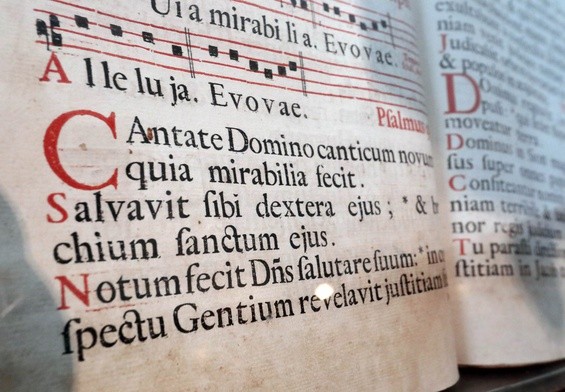 Ui a mirabi li a. Evovae.
Alle lu ja. Evovae.
Psalmus
CAntate Domino canticum novum
quia mirabilia fecit.
Salvavit sibi dextera ejus ; * & br
chium sanctum ejus.
Notum fecit Dñs salutare suum: * in co
spectu Gentium revelavit justitiam
niam
Judicabit
& popu
D
moveatur terra.
Dominus in Sion
sus super omnes
Confiteantur
niam terribile
nor regis
Tu parasti
stitiam in Jacob